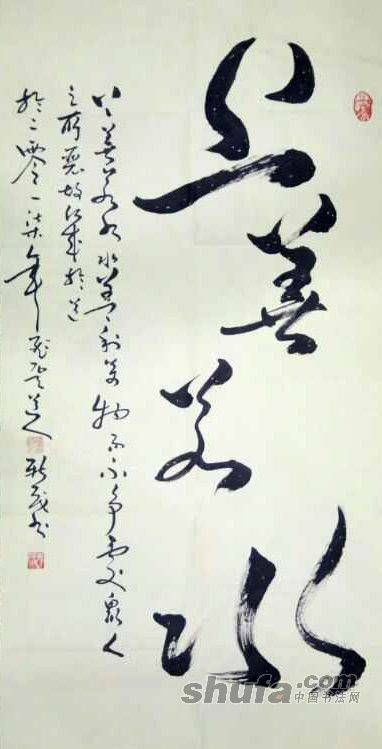 上善若水
上善若水水善利萬物而不爭處衆人
之所惡故於道
於二零一柒年道人
shufa.com
中国书法网